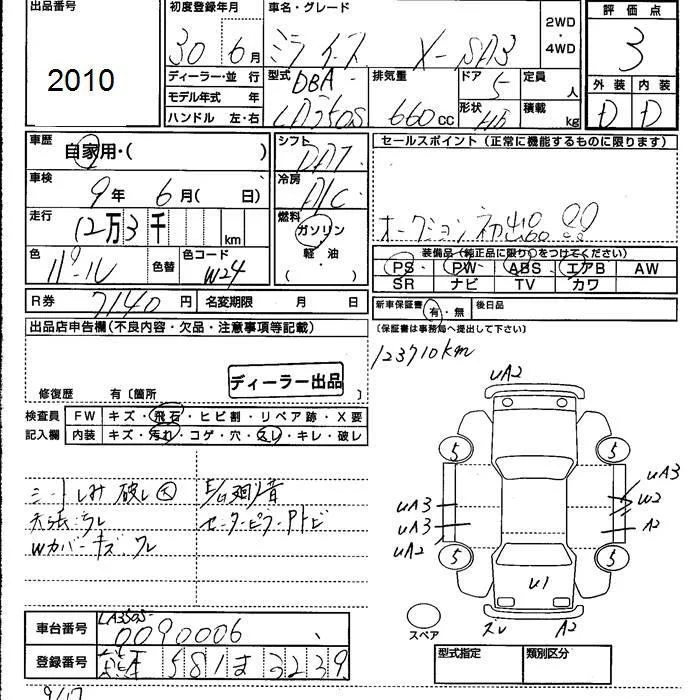 出品番号
2010
初度登録年月
30年6月
車名・グレード
ミライース X-SA3
2WD
・
4WD
評価点
3
外装 内装
D D
ディーラー・並行
モデル年式 年
ハンドル 左・右
型式
DBA-
LA350S
排気量
660cc
ドア
5
形状
HB
定員
人
積載
kg
車歴
自家用・( )
車検
9年6月( 日)
走行
12万3千 km
色
パール
色替
色コード
W24
シフト
DAT
冷房
A/C
燃料
ガソリン
軽・油
( )
セールスポイント (正常に機能するものに限ります)
オークション初出品
装備品(純正品に限り○をつけてください)
PS PW ABS エアB AW
SR ナビ TV カワ
R券
7140円
名変期限 月 日
新車保証書
有・無
後日品
(保証書は事務局へ提出して下さい)
出品店申告欄(不良内容・欠品・注意事項等記載)
ディーラー出品
修復歴 有〔箇所 〕
123710km
検査員
記入欄
FW キズ・飛石・ヒビ割・リペア跡・X要
内装 キズ・汚れ・コゲ・穴・スレ・キレ・破レ
シートしみ 破レ 大
天張ヨゴレ
Wカバーキズ ワレ
UA2
5 5
UA3
UA3
UA3
W2
UA2
A2
5 5
U1
ズレ A2
スペア
車台番号
LA350S-
0090006
登録番号
熊本 581 ま 3239
型式指定 類別区分
9/17